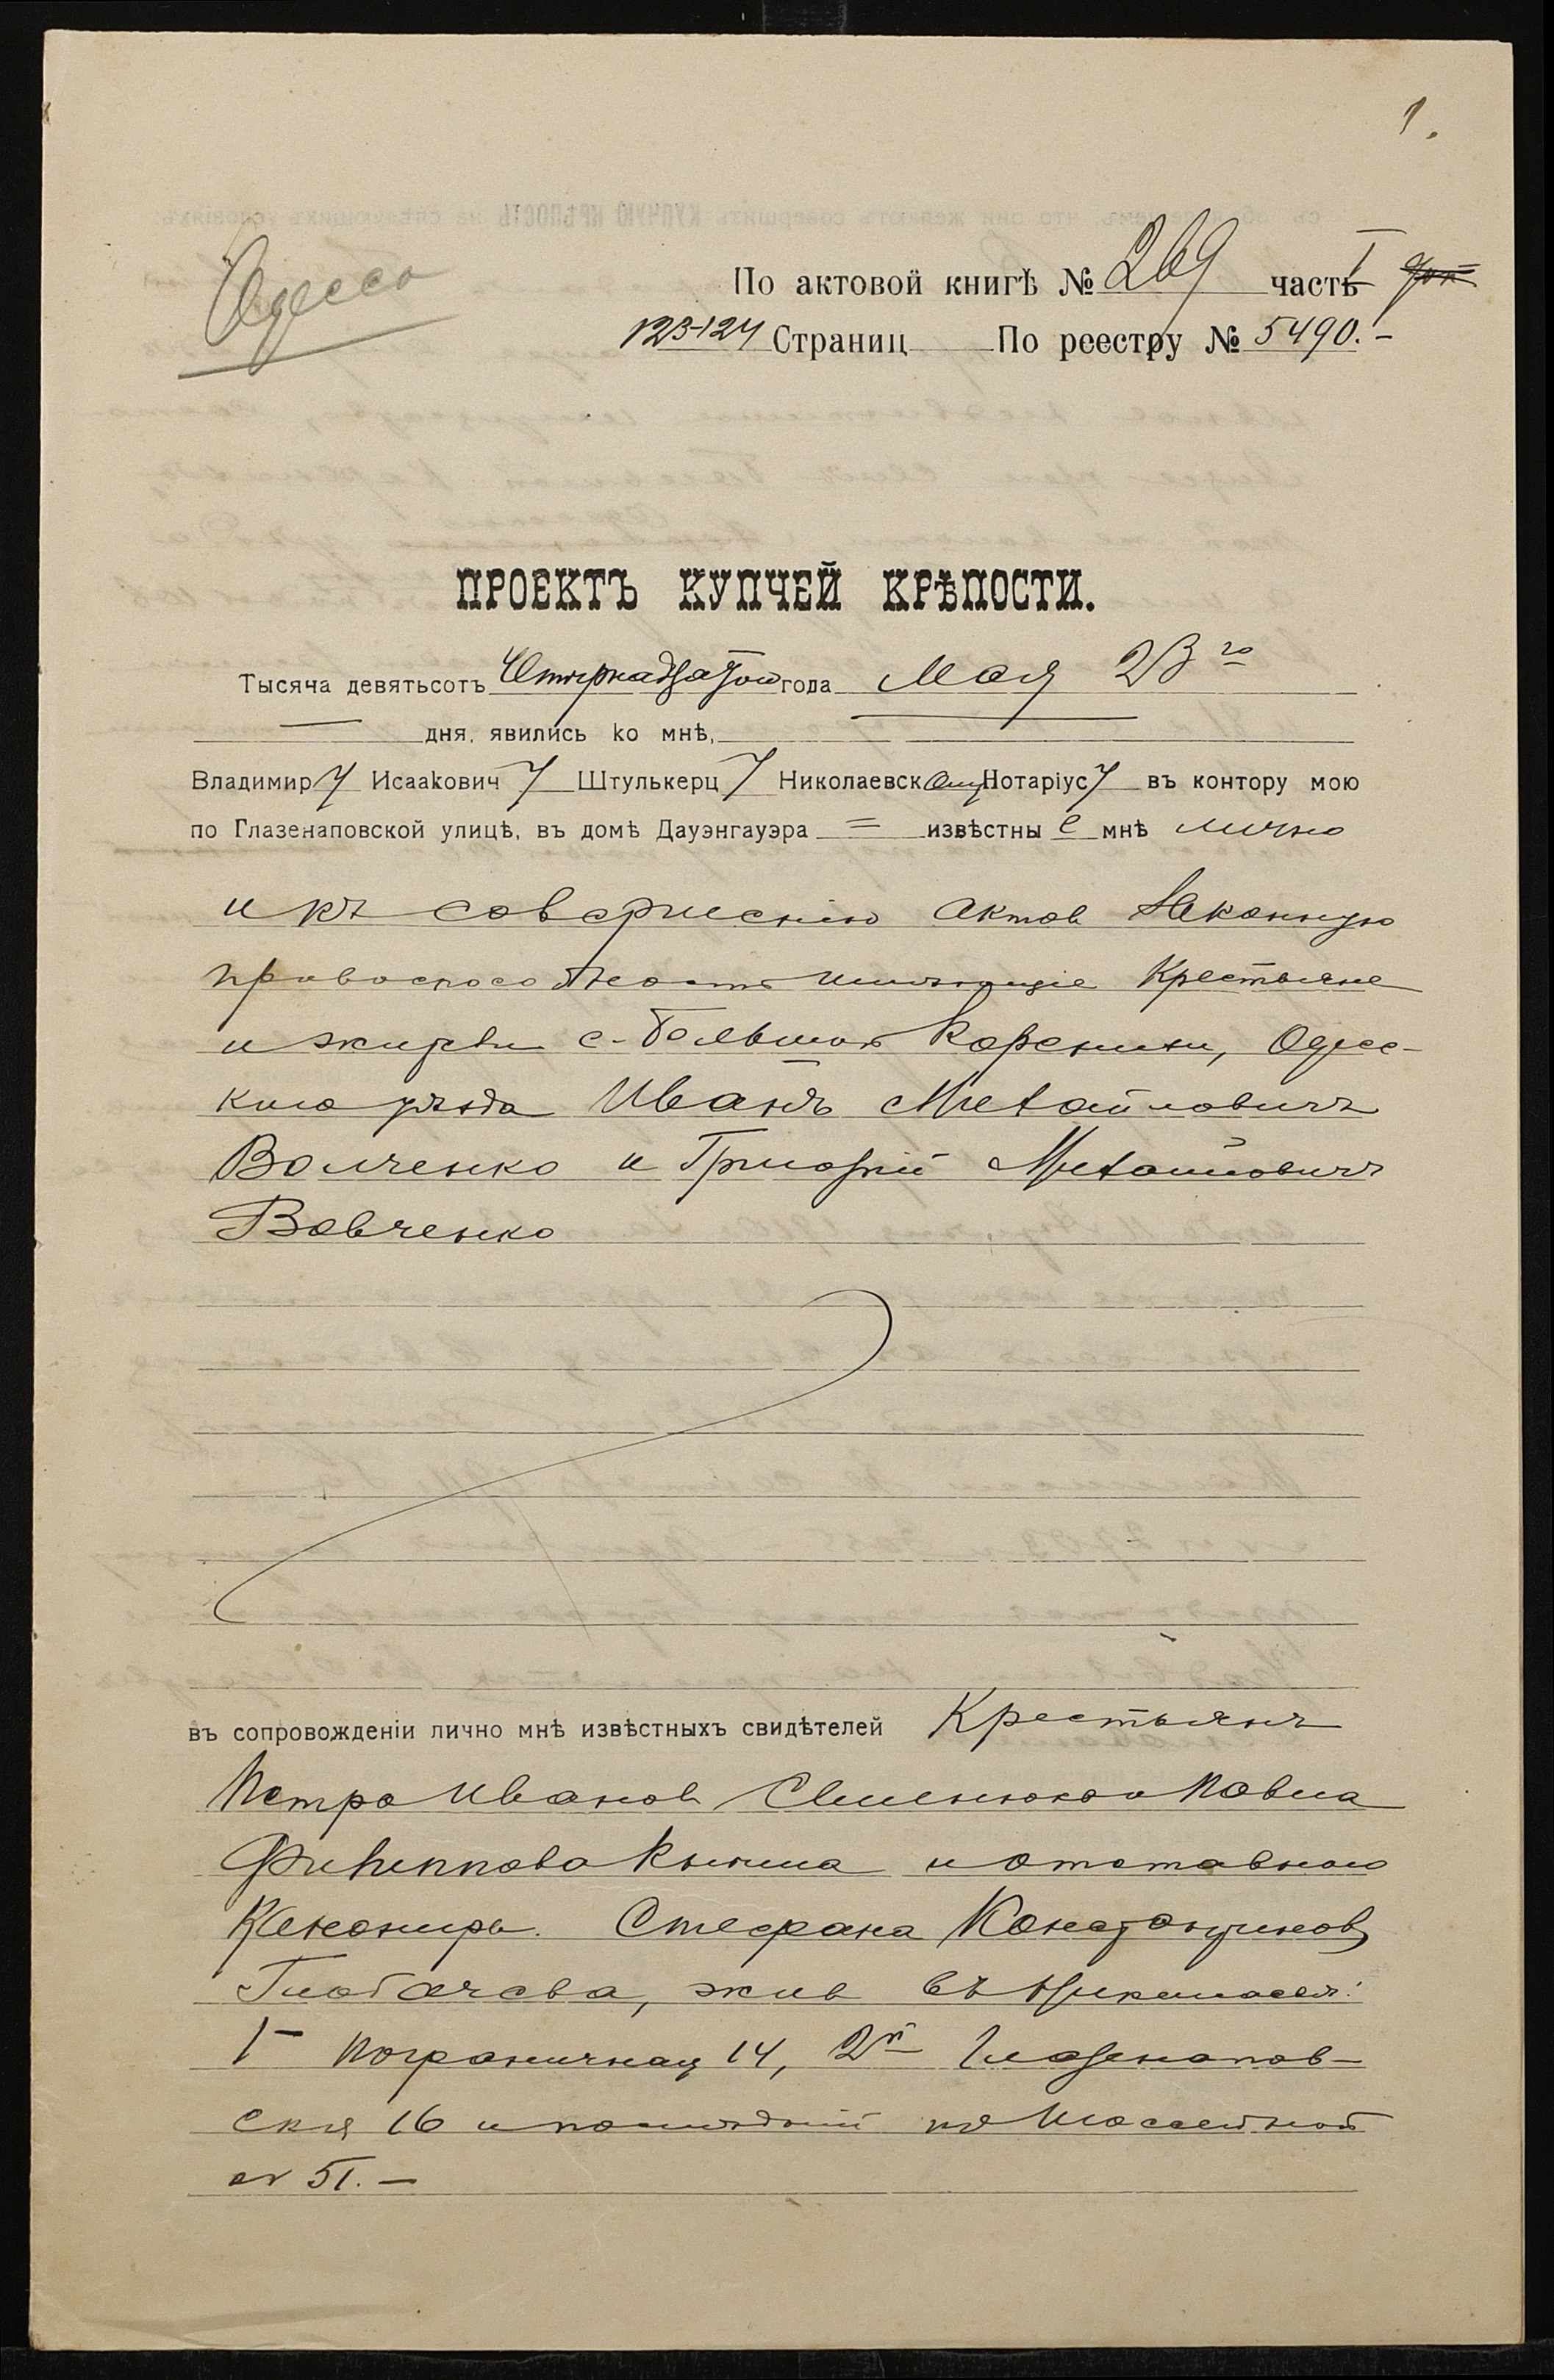 1.
Одесса
По актовой книгѣ № 269 часть I
123-124 Страниц По реестру № 5490.-
ПРОЕКТЪ КУПЧЕЙ КРѢПОСТИ.
Тысяча девятьсотъ Четырнадцатого года Мая 23го
дня, явились ко мнѣ,
Владимиру Исааковичу Штулькерцу Николаевскому Нотаріусу въ контору мою
по Глазенаповской улицѣ, въ домѣ Дауэнгауэра = извѣстные мнѣ лично
и къ совершенію актов законную
правоспособность имѣющіе Крестьяне
и жители с. Большой Коренихи, Одес-
каго уѣзда Иванъ Михайловичъ
Волченко и Григорій Михайловичъ
Вовченко
въ сопровожденіи лично мнѣ извѣстныхъ свидѣтелей Крестьянъ
Петра Иванов и Павла
Филиппова и отставного
Канонира Стефана Константинов
Глобачева, жив въ Николаевѣ:
1й Пограничная 14, 2й Глазенапов-
ская 16 и послѣдній по Шоссейной
№ 51.-